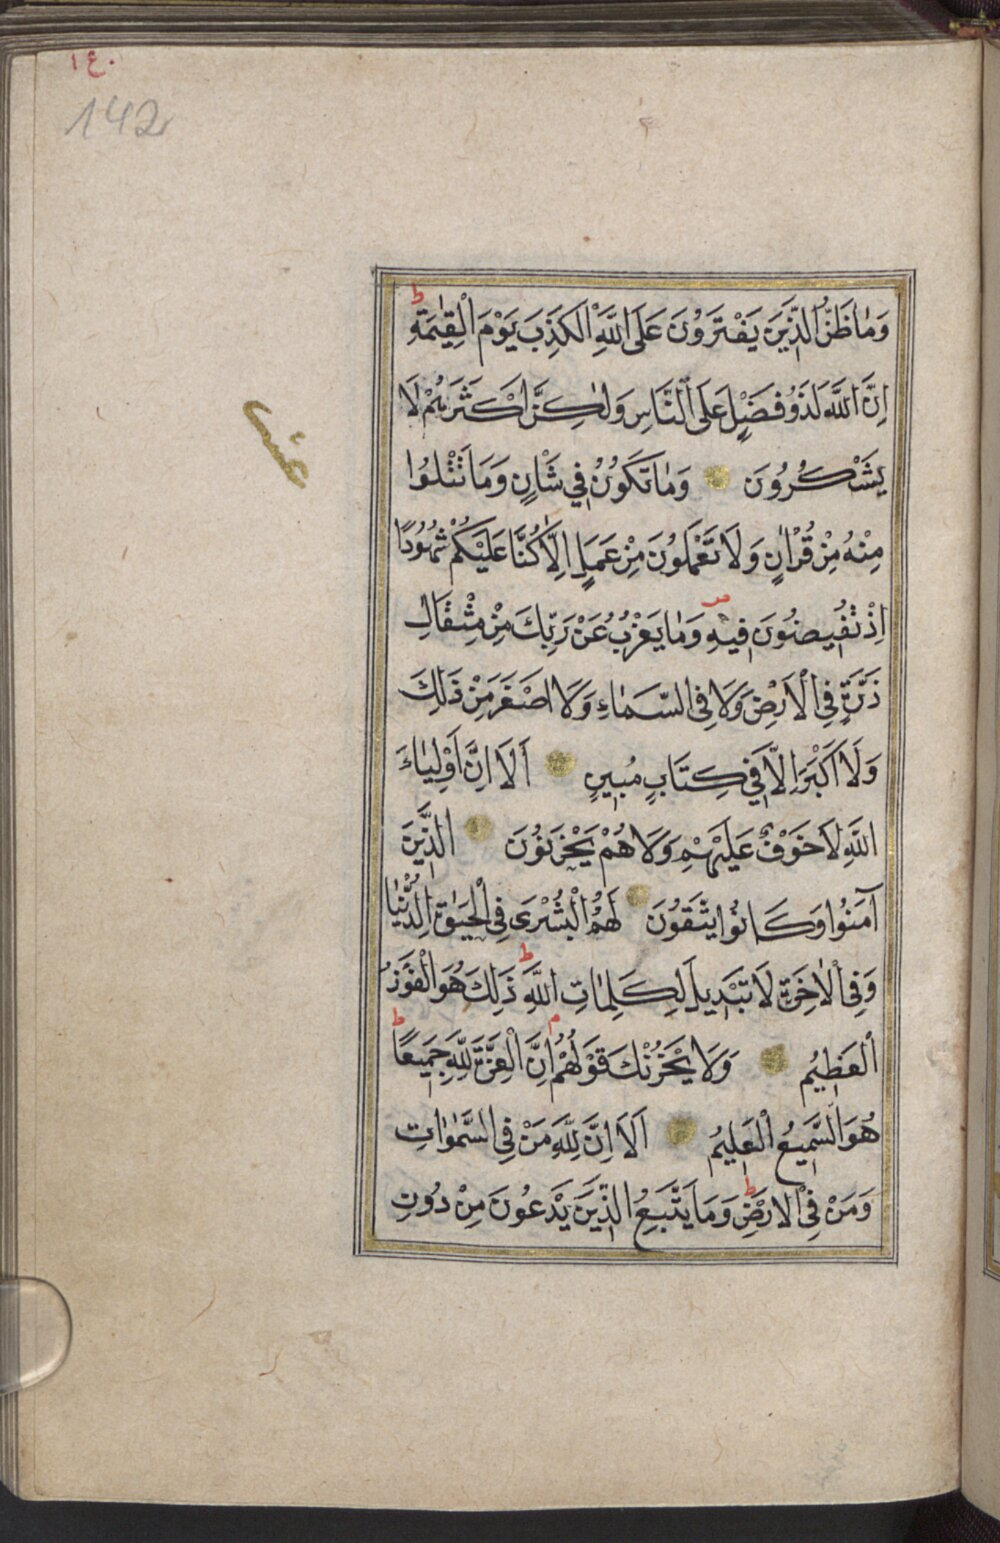 ١٤٠
142
عشر
وَمَا ظَنُّ الَّذِينَ يَفْتَرُونَ عَلَى اللَّهِ الْكَذِبَ يَوْمَ الْقِيٰمَةِ ط
اِنَّ اللَّهَ لَذُو فَضْلٍ عَلَى النَّاسِ وَلٰكِنَّ اَكْثَرَهُمْ لَا
يَشْكُرُونَ وَمَا تَكُونُ فِي شَاْنٍ وَمَا تَتْلُوا
مِنْهُ مِنْ قُرْاٰنٍ وَلَا تَعْمَلُونَ مِنْ عَمَلٍ اِلَّا كُنَّا عَلَيْكُمْ شُهُودًا
اِذْ تُفِيضُونَ فِيهِ وَمَا يَعْزُبُ عَنْ رَبِّكَ مِنْ مِثْقَالِ
ذَرَّةٍ فِي الْاَرْضِ وَلَا فِي السَّمَاءِ وَلَا اَصْغَرَ مِنْ ذٰلِكَ
وَلَا اَكْبَرَ اِلَّا فِي كِتَابٍ مُبِينٍ اَلَا اِنَّ اَوْلِيَاءَ
اللَّهِ لَا خَوْفٌ عَلَيْهِمْ وَلَا هُمْ يَحْزَنُونَ الَّذِينَ
آمَنُوا وَكَانُوا يَتَّقُونَ لَهُمُ الْبُشْرَى فِي الْحَيٰوةِ الدُّنْيَا
وَفِي الْاٰخِرَةِ لَا تَبْدِيلَ لِكَلِمَاتِ اللَّهِ ط ذٰلِكَ هُوَ الْفَوْزُ
الْعَظِيمُ وَلَا يَحْزُنْكَ قَوْلُهُمْ م اِنَّ الْعِزَّةَ لِلّٰهِ جَمِيعًا ط
هُوَ السَّمِيعُ الْعَلِيمُ اَلَا اِنَّ لِلّٰهِ مَنْ فِي السَّمٰوَاتِ
وَمَنْ فِي الْاَرْضِ ط وَمَا يَتَّبِعُ الَّذِينَ يَدْعُونَ مِنْ دُونِ